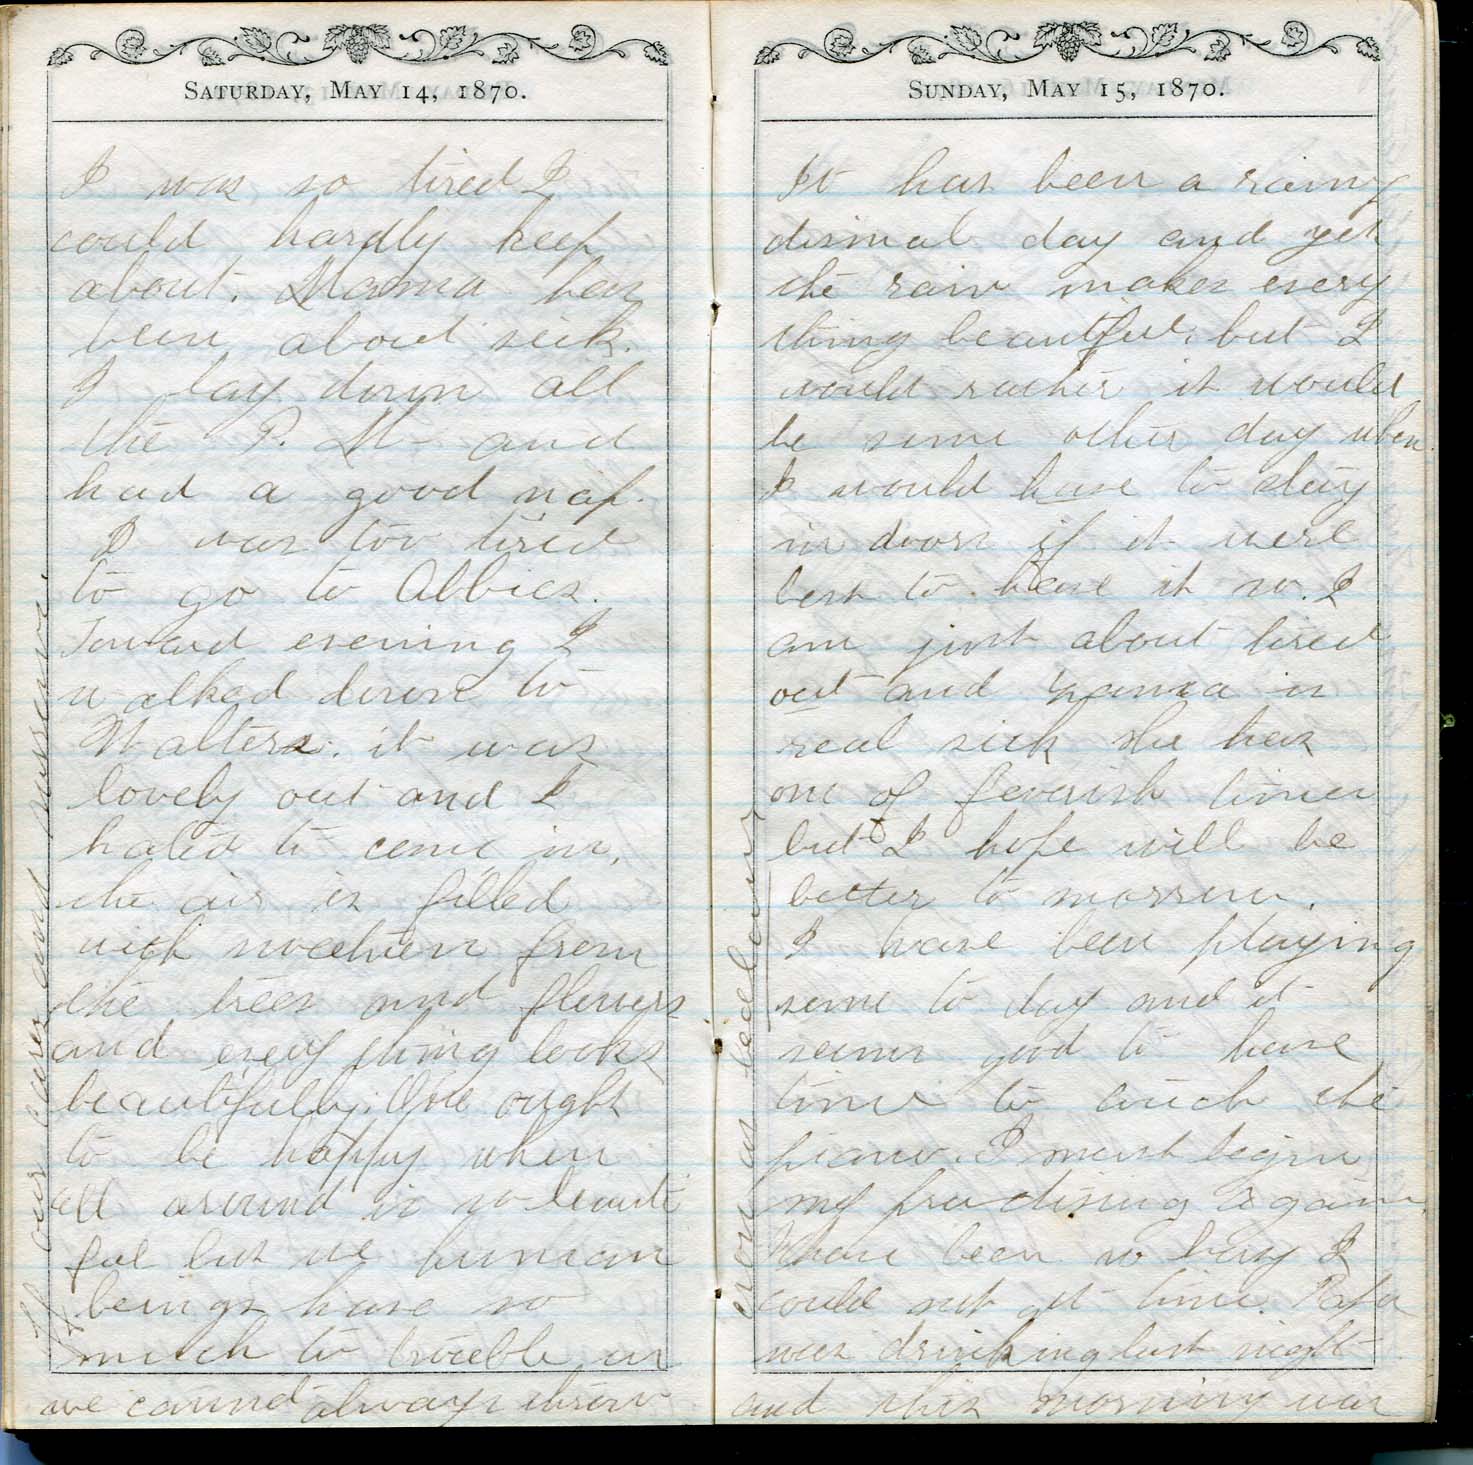 SATURDAY, MAY 14, 1870.
I was so tired I
could hardly keep
about. Mama has
been about sick.
I lay down all
the P. M- and
had a good nap.
I was too tired
to go to Abbies.
Toward evening I
walked down to
Walters. it was
lovely out and I
hated to come in,
the air is filled
with sweetness from
the trees and flowers
and every thing looks
beautifully. One ought
to be happy when
all around is so beauti
ful but we human
beings have so
much to trouble us
we cannot always throw
off our cares and
SUNDAY, MAY 15, 1870.
It has been a rainy
dismal day and yet
the rain makes every
thing beautiful, but I
would rather it would
be some other day when
I would have to stay
in doors if it were
best to have it so. I
am just about tired
out and mama is
real sick she has
one of feverish times
but I hope will be
better to morrow.
I have been playing
some to day and it
seems good to have
time to touch the
piano. I must begin
my practising again
I have been so busy I
could not get time. Papa
was drinking last night
and this morning was
cross as